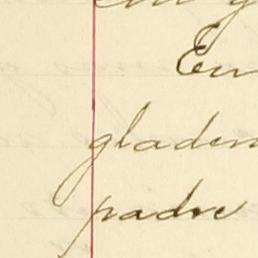 En
gladem
padre